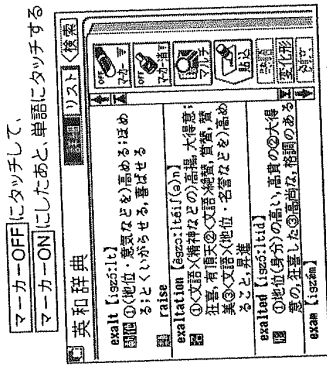 マーカーOFFにタッチして、
マーカーONにしたあと、単語にタッチする
英和辞典
リスト
検索
exalt [iɡzɔ́ːlt]
①(地位・意気などを)高める;ほめ
る;とくいがらせる,喜ばせる
raise
exaltation [èɡzɔːltéiʃ(ə)n]
①〈文語〉(精神などの)高揚,大得意;
狂喜,有頂天②〈文語〉絶賛,賞賛,賛
美③〈文語〉(地位・名誉などを)高め
ること,昇進
exalted [iɡzɔ́ːltid]
①地位(身分)の高い,高貴の②大得
意の,狂喜した③高尚な,格調のある
exam [iɡzǽm]
OFF
マーカー
OFF
マーカー消
マルチ
貼込
変化形